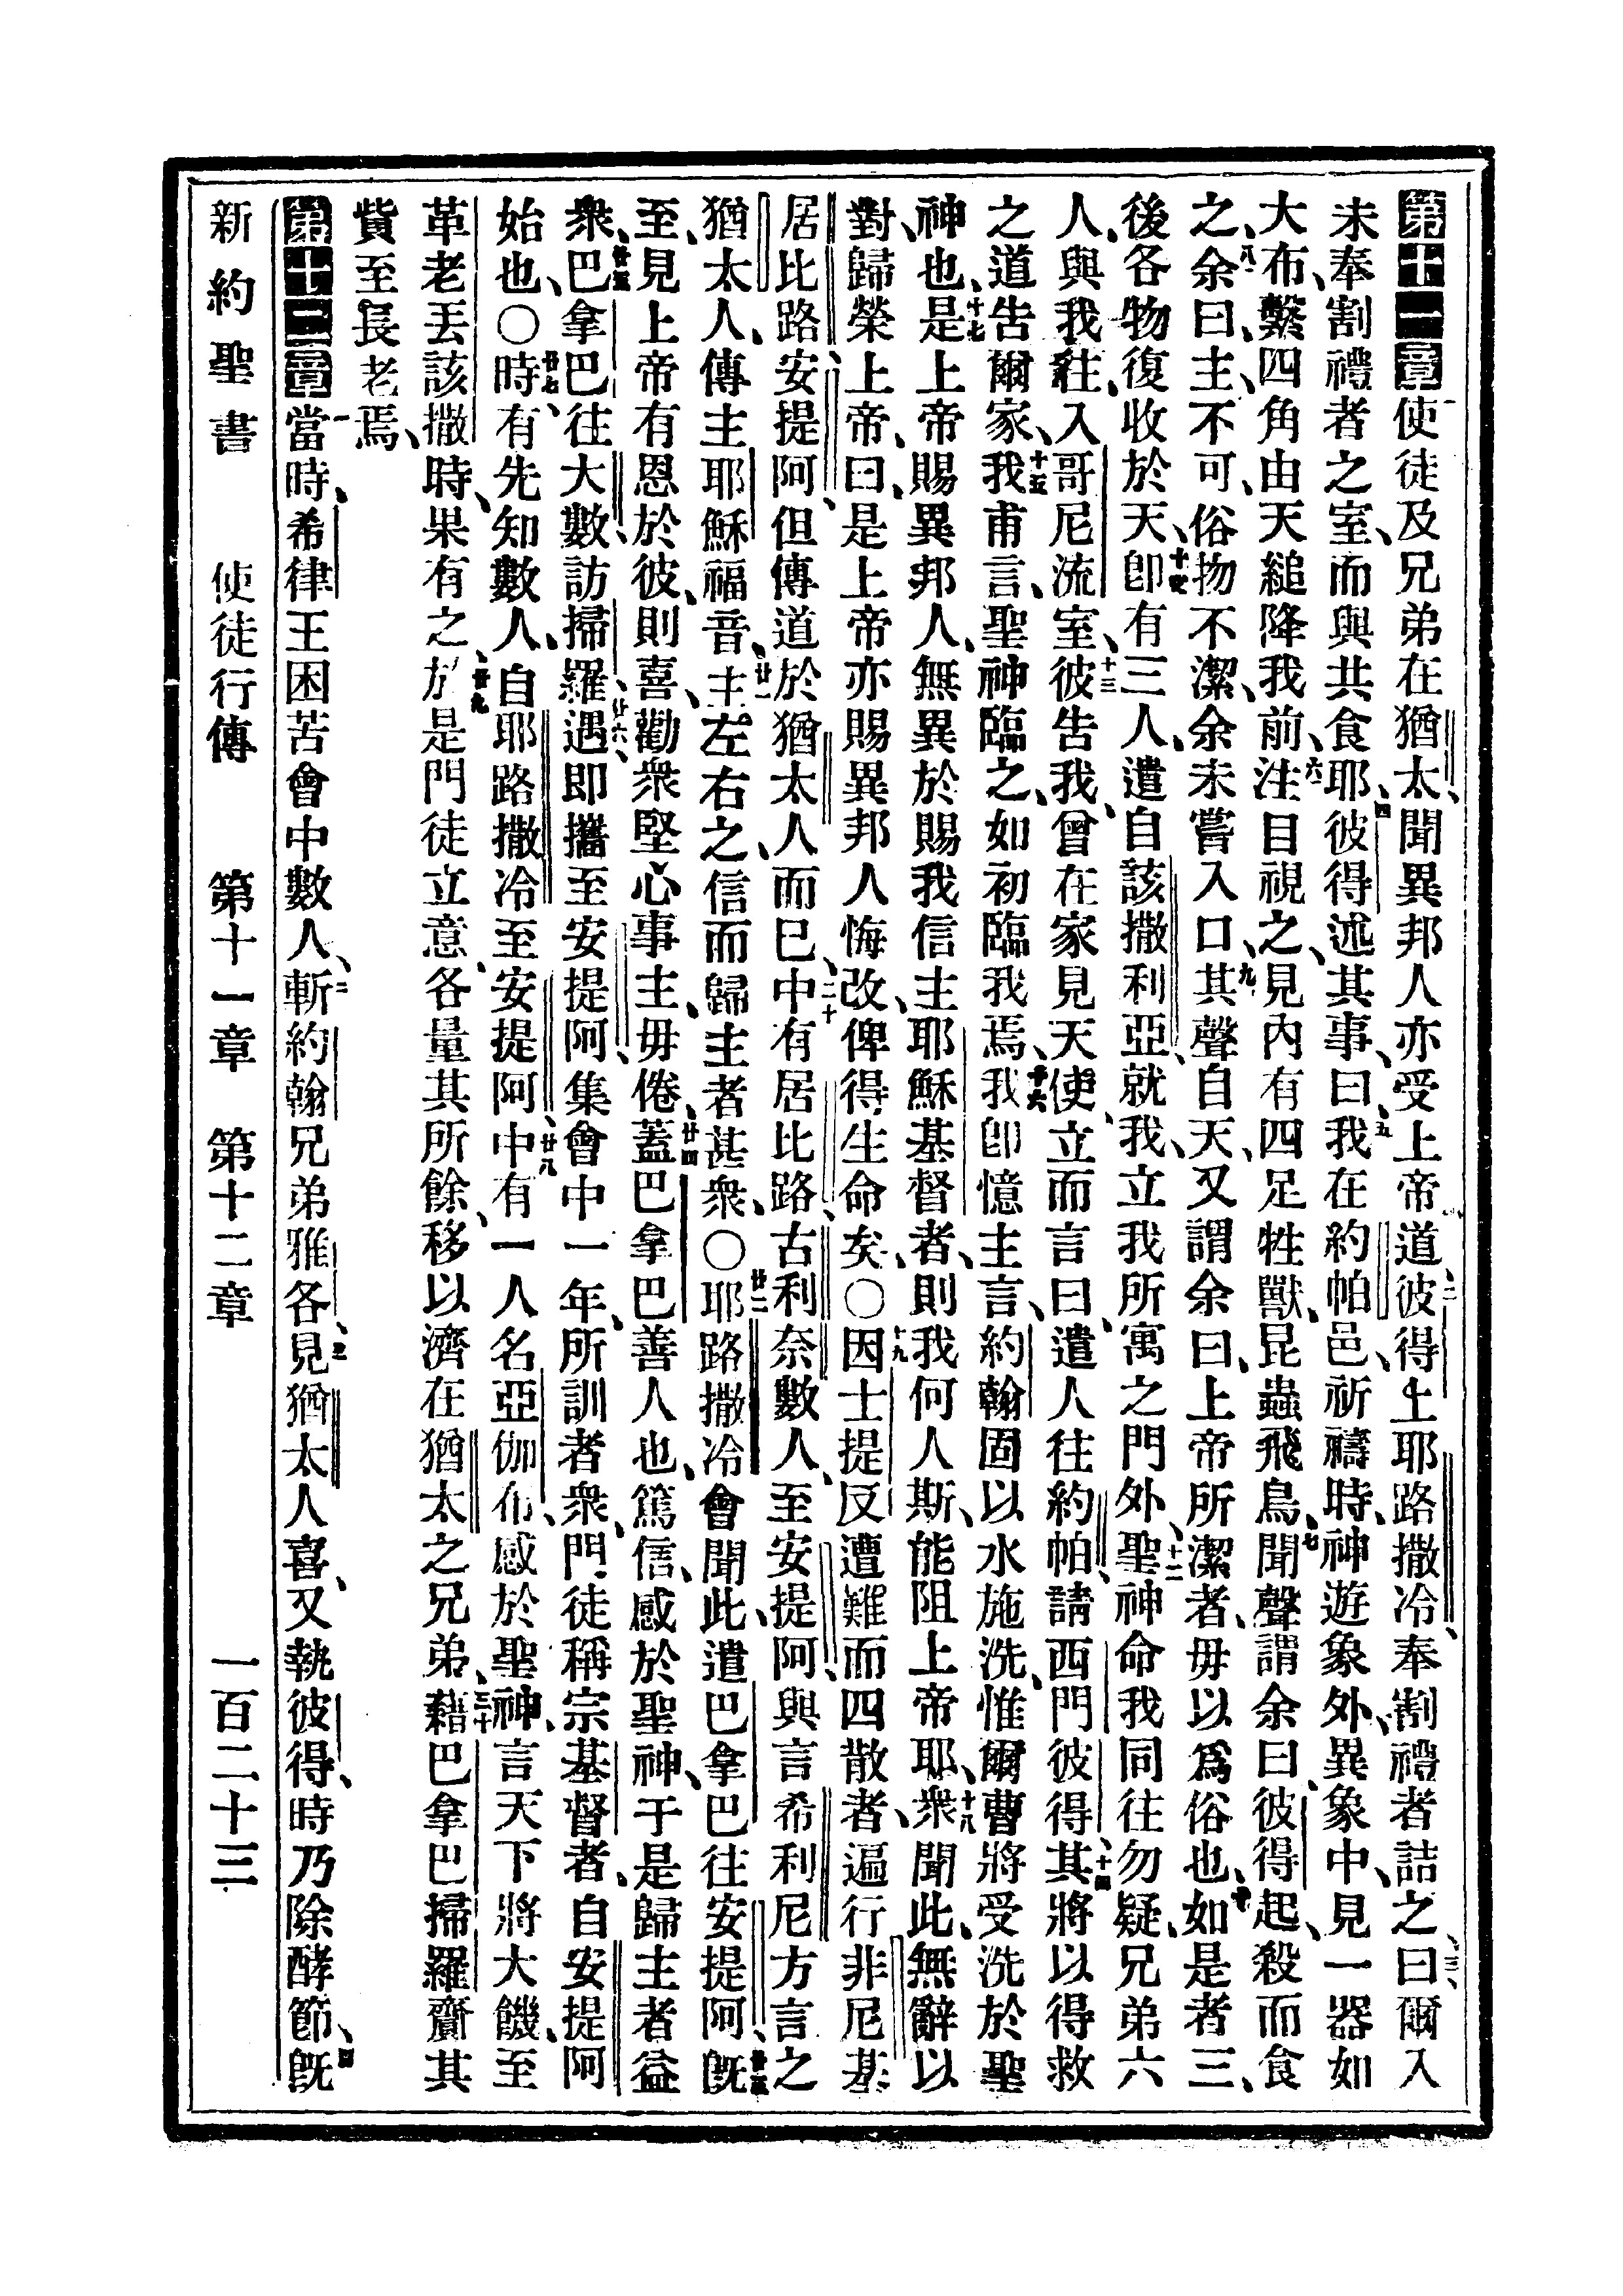 第十一章使徒及兄弟在猶太、聞異邦人亦受上帝道、二彼得上耶路撒冷、奉割禮者詰之、三曰、爾入
未奉割禮者之室、而與共食耶、四彼得述其事、五曰、我在約帕邑、祈禱時、神遊象外、異象中、見一器如
大布、繫四角由天縋降我前、六注目視之、見內有四足牲獸、昆蟲飛鳥、七聞聲謂余曰、彼得起、殺而食
之、八余曰、主、不可、俗物不潔、余未嘗入口、九其聲自天、又謂余曰、上帝所潔者、毋以爲俗也、十如是者三、
後各物復收於天、十一卽有三人、遣自該撒利亞、就我、立我所寓之門外、十二聖神命我同往勿疑、兄弟六
人、與我往、入哥尼流室、十三彼告我、曾在家見天使、立而言曰、遣人往約帕、請西門彼得、十四其將以得救
之道告爾家、十五我甫言、聖神臨之、如初臨我焉、十六我卽憶主言、約翰固以水施洗、惟爾曹將受洗於聖
神也、十七是上帝賜異邦人、無異於賜我信主耶穌基督者、則我何人斯、能阻上帝耶、十八衆聞此、無辭以
對、歸榮上帝、曰、是上帝亦賜異邦人悔改、俾得生命矣、〇十九因士提反遭難而四散者、遍行非尼基
居比路、安提阿、但傳道於猶太人而已、二十中有居比路、古利奈數人、至安提阿、與言希利尼方言之
猶太人、傳主耶穌福音、廿一主左右之、信而歸主者甚衆、〇廿二耶路撒冷會聞此、遣巴拿巴往安提阿、廿三旣
至、見上帝有恩於彼、則喜、勸衆堅心事主、毋倦、廿四蓋巴拿巴善人也、篤信、感於聖神、于是歸主者益
衆、廿五巴拿巴往大數、訪掃羅、廿六遇卽攜至安提阿、集會中一年、所訓者衆、門徒稱宗基督者、自安提阿
始也、〇廿七時有先知數人、自耶路撒冷至安提阿、廿八中有一人名亞伽布、感於聖神、言天下將大饑、至
革老丟該撒時、果有之、廿九於是門徒立意、各量其所餘、移以濟在猶太之兄弟、三十藉巴拿巴掃羅齎其
貲至長老焉、
第十二章一當時、希律王困苦會中數人、二斬約翰兄弟雅各、三見猶太人喜、又執彼得、時乃除酵節、四旣
新約聖書　使徒行傳　第十一章　第十二章　一百二十三